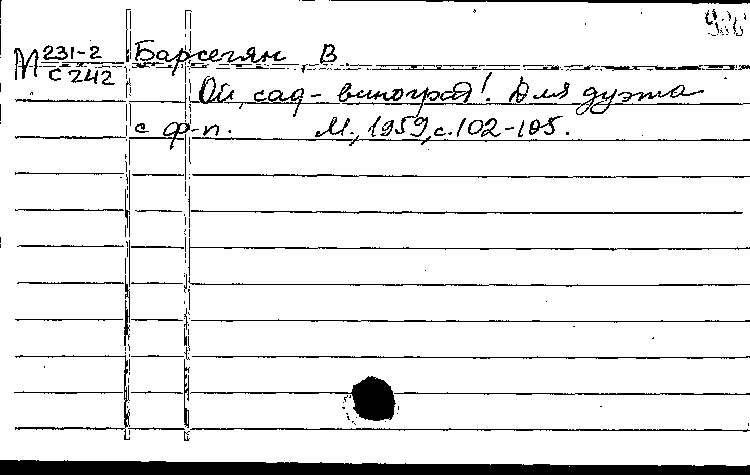 М 231-2 Барсегян, В.
С 242
Ой, сад-виноград! Для дуэта
с ф-п. М., 1959, с. 102-105.